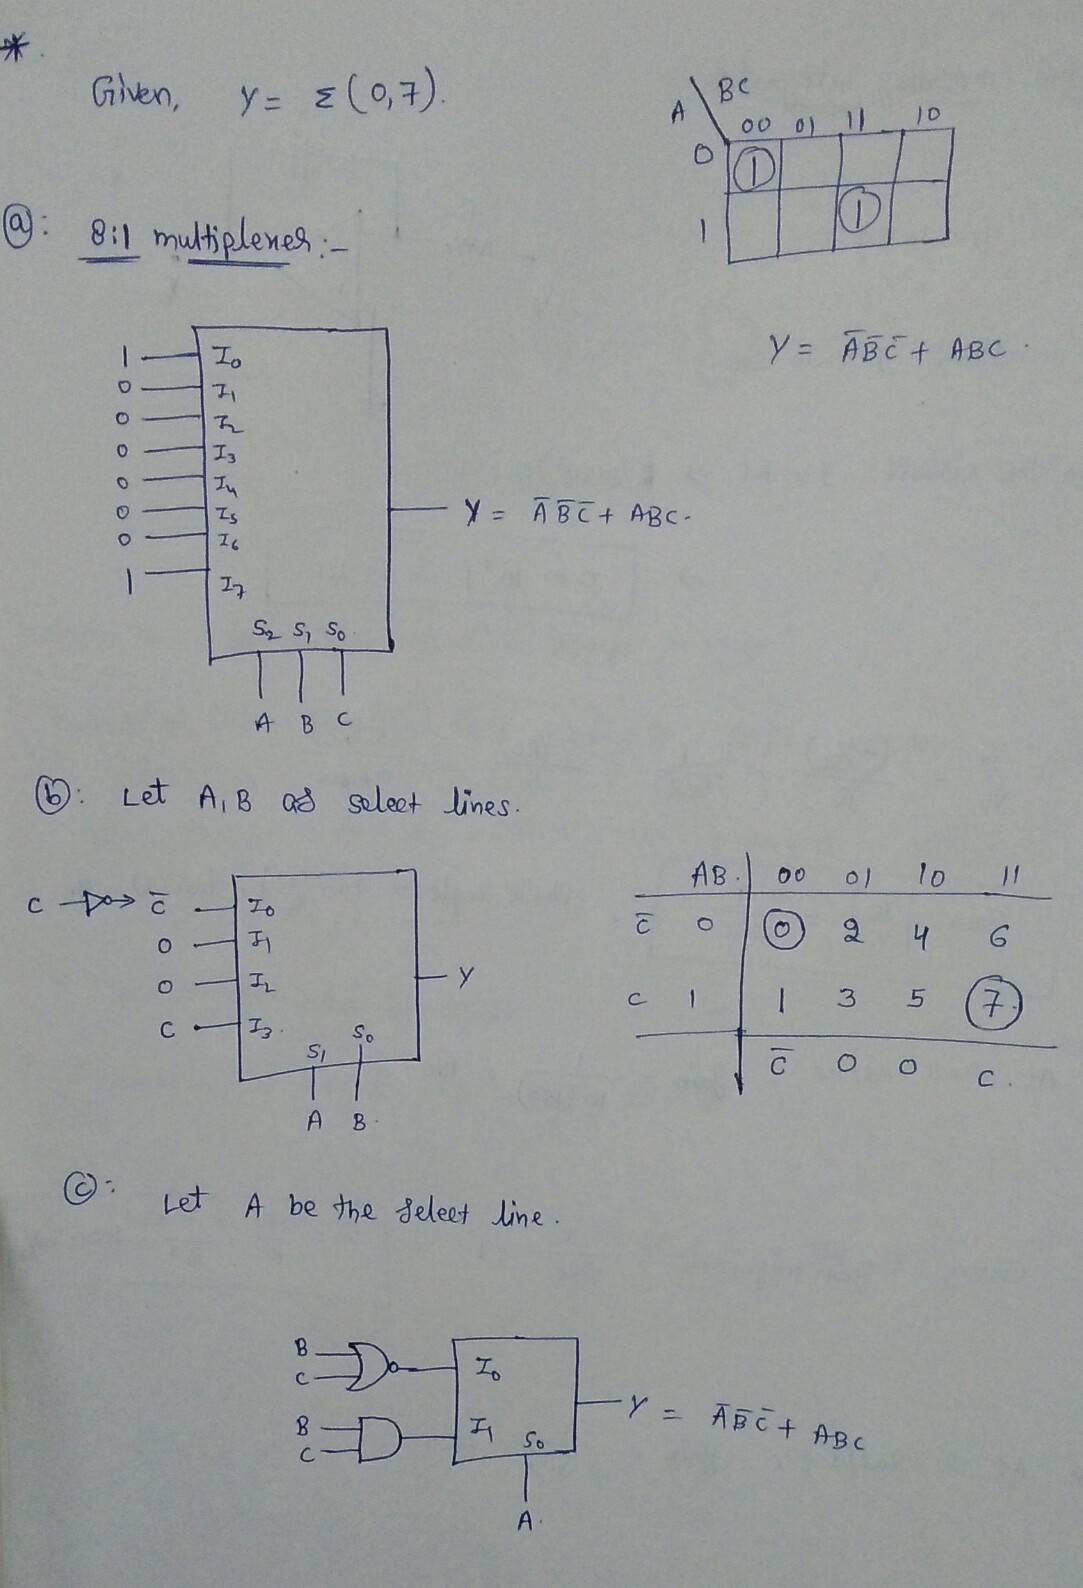 *
Given, Y = Σ(0,7).
A \ BC
00 01 11 10
0 1
1 1
Y = A̅B̅C̅ + ABC.
(a): 8:1 multiplexer:-
1 I0
0 I1
0 I2
0 I3
0 I4
0 I5
0 I6
1 I7
S2 S1 S0
A B C
Y = A̅B̅C̅ + ABC.
(b): Let A, B as select lines.
C C̅ I0
0 I1
0 I2
C I3
S1 S0
A B
Y
AB 00 01 10 11
C̅ 0 0 2 4 6
C 1 1 3 5 7
C̅ 0 0 C.
(c): Let A be the select line.
B
C
I0
B
C
I1
S0
A.
Y = A̅B̅C̅ + ABC